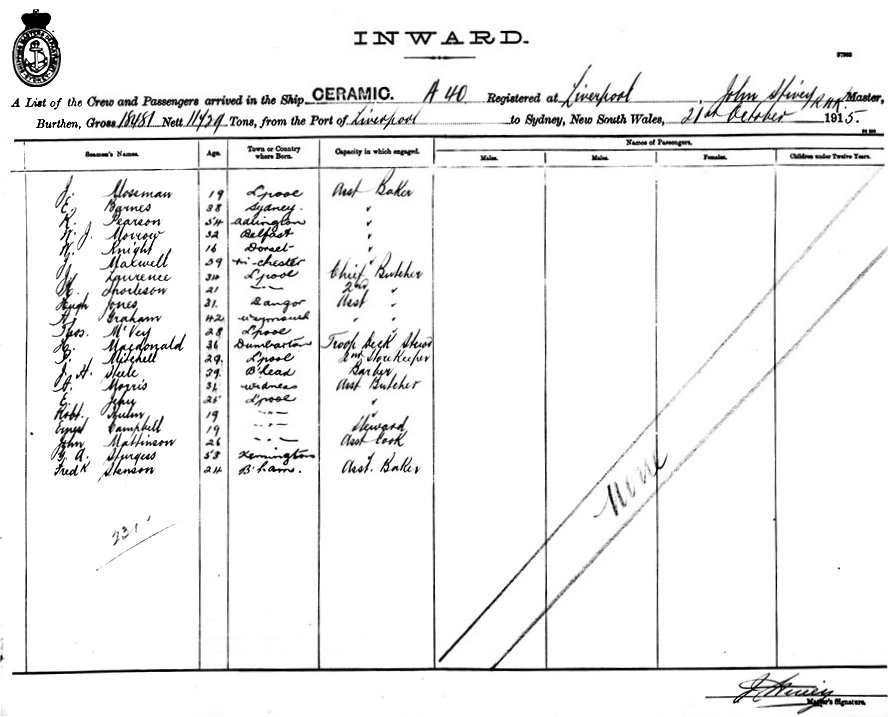 INWARD.
A List of the Crew and Passengers arrived in the Ship CERAMIC. A 40 Registered at Liverpool, John Spivey RNR Master,
Burthen, Gross 18481 Nett 11729 Tons, from the Port of Liverpool to Sydney, New South Wales, 21st October 1915.
Seamen's Names. Age. Town or Country where Born. Capacity in which engaged. Names of Passengers.
Males. Males. Females. Children under Twelve Years.
J. Mossman 19 L'pool Asst Baker
E. Barnes 38 Sydney. "
K. Pearson 54 Adlington "
W. J. Morrow 32 Belfast "
W. Knight 16 Dorset "
J. Maxwell 39 "
J. Laurence 34 L'pool Chief Butcher
21 " " 2nd "
Hugh Jones 31. Bangor Asst "
Graham 42 Weymouth " "
Thos. McVey 28 L'pool "
Macdonald 36 Dumbarton Troop Deck Stew'd
Mitchell 29. L'pool 2nd Storekeeper
J. H. Steele 39. B'head Barber
Morris 31 Widness Asst Butcher
E. 25 L'pool "
Robt. 19 " " "
Ernest Campbell 19 " " Steward
John Mattinson 26 " " Asst Cook
G. A. Sturgess 53 Kennington "
Fredk Stenson 24 B'ham. Asst. Baker
None
231
Master's Signature.